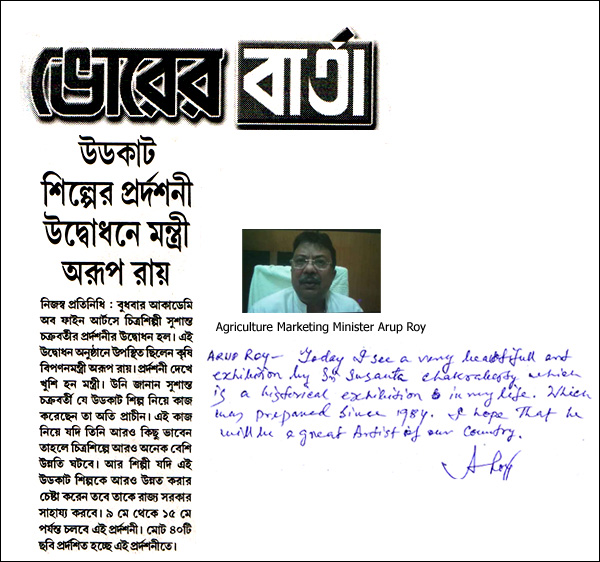 ভোরের বার্তা
উডকাট
শিল্পের প্রর্দশনী
উদ্বোধনে মন্ত্রী
অরূপ রায়
নিজস্ব প্রতিনিধি : বুধবার আকাডেমি
অব ফাইন আর্টসে চিত্রশিল্পী সুশান্ত
চক্রবর্তীর প্রর্দশনীর উদ্বোধন হল। এই
উদ্বোধন অনুষ্ঠানে উপস্থিত ছিলেন কৃষি
বিপণনমন্ত্রী অরূপ রায়। প্রর্দশনী দেখে
খুশি হন মন্ত্রী। উনি জানান সুশান্ত
চক্রবর্তী যে উডকাট শিল্প নিয়ে কাজ
করেছেন তা অতি প্রাচীন। এই কাজ
নিয়ে যদি তিনি আরও কিছু ভাবেন
তাহলে চিত্রশিল্পে আরও অনেক বেশি
উন্নতি ঘটবে। আর শিল্পী যদি এই
উডকাট শিল্পকে আরও উন্নত করার
চেষ্টা করেন তবে তাকে রাজ্য সরকার
সাহায্য করবে। ৯ মে থেকে ১৫ মে
পর্যন্ত চলবে এই প্রর্দশনী। মোট ৪০টি
ছবি প্রর্দশিত হচ্ছে এই প্রর্দশনীতে।
Agriculture Marketing Minister Arup Roy
ARUP ROY – Today I see a very beautifull art
exhibition by Sri Susanta Chakraborty which
is a historical exhibition in my life. Which
was prepared since 1984. I hope That he
will be a great Artist of our Country.
A Roy